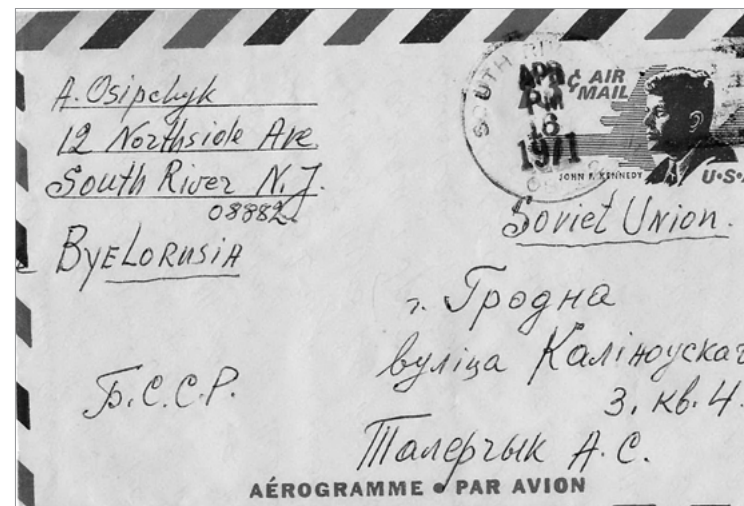 A. Osipchyk
12 Northside Ave.
South River N.J.
08882
ByeLorusia
Б.С.С.Р.
SOUTH RIV
APR
PM
16
1971
¢ AIR
MAIL
JOHN F. KENNEDY
U·S·
Soviet Union.
г. Гродна
вуліца Каліноускаг
3. кв. 4.
Талерчык А. С.
AÉROGRAMME • PAR AVION